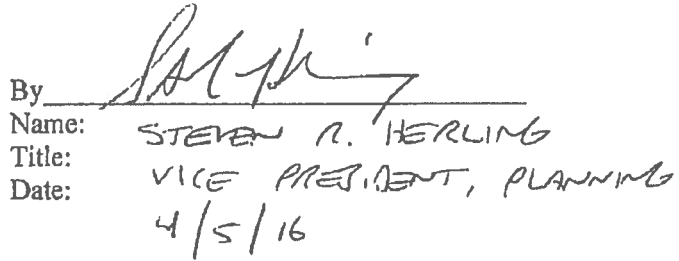 By
Name: STEVEN R. HERLING
Title: VICE PRESIDENT, PLANNING
Date: 4/5/16